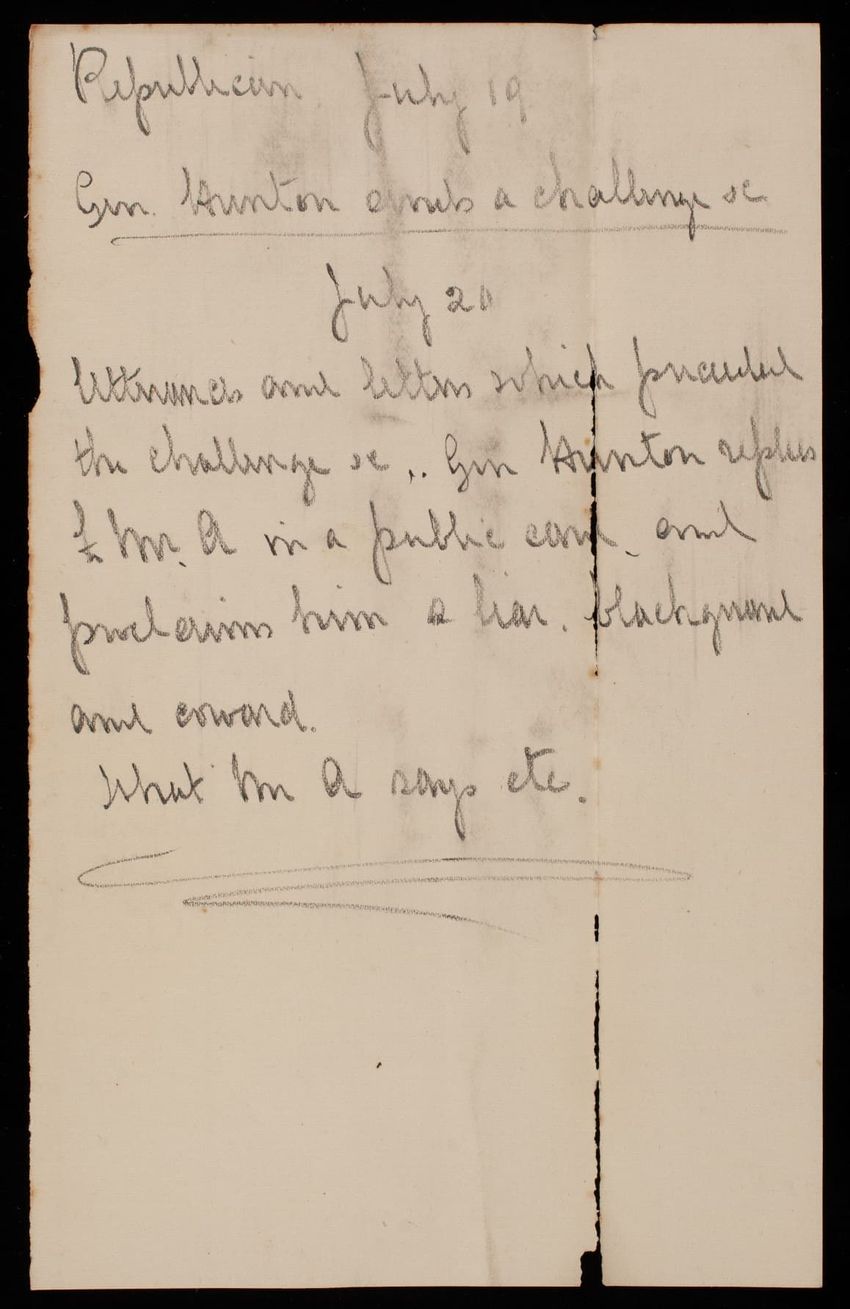 Republican July 19
Gen. Hunton sends a challenge &c
July 20
Utterances and letters which preceeded
the challenge &c .. Gen Hunton replies
to Mr. A in a public card, and
proclaims him a liar, blackguard
and coward.
What Mr A says etc.